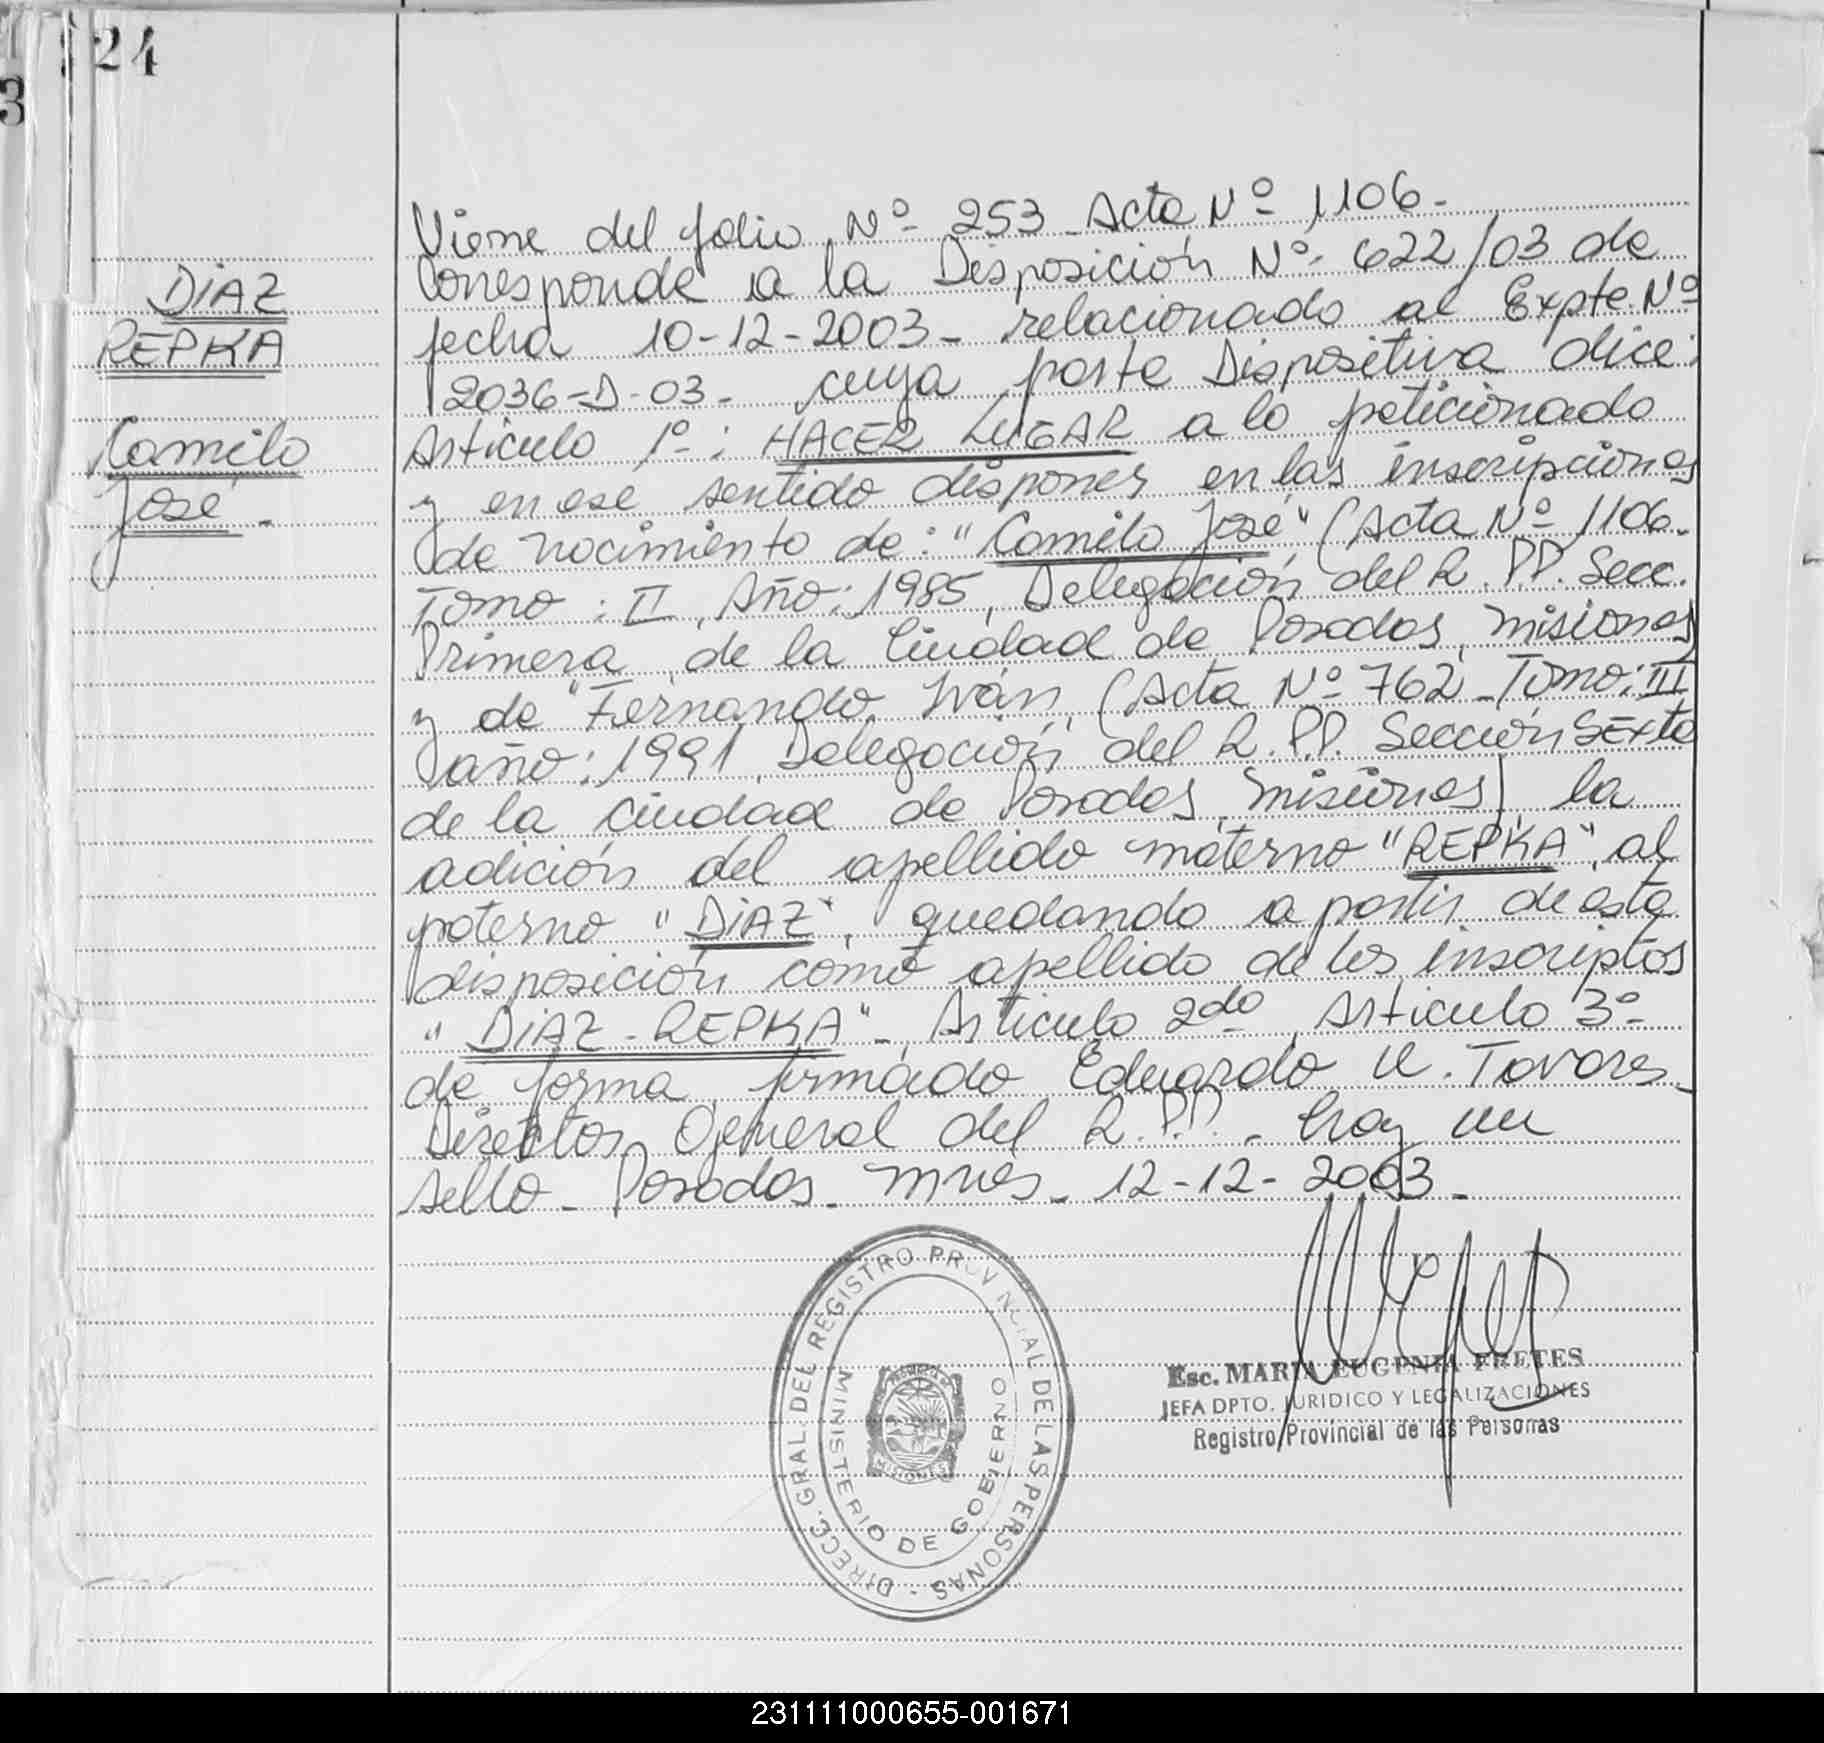 24
3
DIAZ
REPKA
Camilo
José -
Viene del folio Nº 253 - Acta Nº 1106 -
Corresponde a la Disposición Nº 622/03 de
fecha 10-12-2003 - relacionado al Expte. Nº
2036-D-03 - cuya parte Dispositiva dice:
Articulo 1º: HACER LUGAR a lo peticionado
y en ese sentido disponer en las inscripciones
de nacimiento de: "Camilo José" (Acta Nº 1106 -
Tomo: II, Año: 1985, Delegación del R.P.P. Secc.
Primera de la Ciudad de Posadas, Misiones)
y de "Fernando Iván, (Acta Nº 762 - Tomo: III
año: 1991, Delegación del R.P.P. Sección Sexta
de la ciudad de Posadas, Misiones) la
adición del apellido materno "REPKA", al
paterno "DIAZ", quedando a partir de esta
disposición como apellido de los inscriptos
"DIAZ - REPKA" -, Articulo 2do, Articulo 3º
de forma, firmado Eduardo V. Tavares -
Director General del R.P.P. - hay un
sello - Posadas - Mnes - 12-12-2003 -
DIRECC. GRAL. DEL REGISTRO PROVINCIAL DE LAS PERSONAS -
MINISTERIO DE GOBIERNO
MISIONES
Esc. MARIA EUGENIA FRETES
JEFA DPTO. JURIDICO Y LEGALIZACIONES
Registro Provincial de las Personas
231111000655-001671